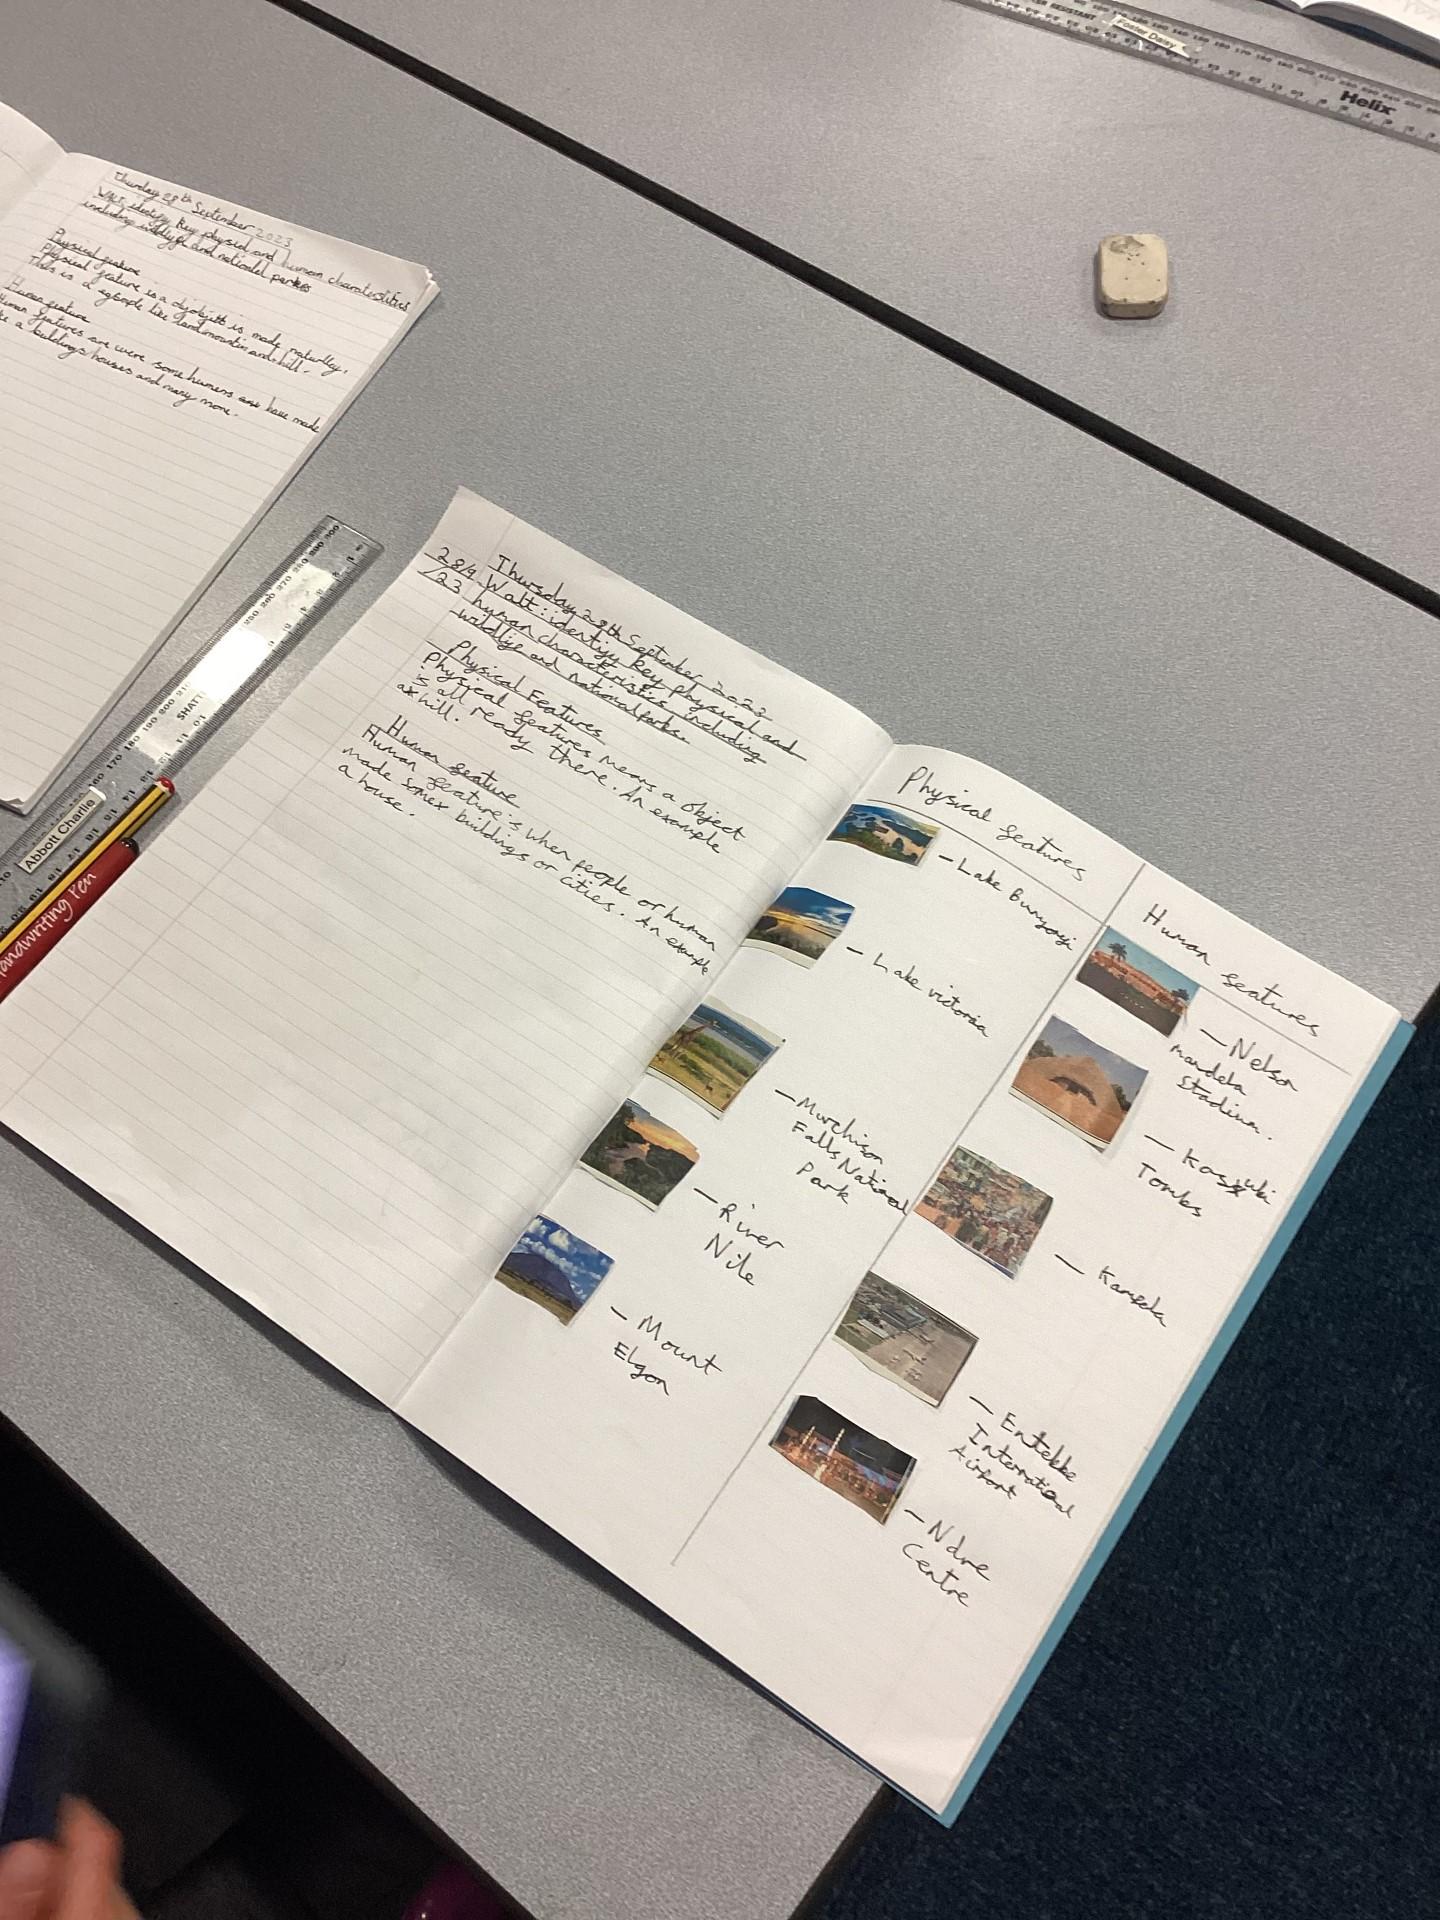 Thursday 28th September 2023
WALT: identify key physical and human charaterstitics
including wildlife and national parkes
Physical feature
Physical feature is a objobjets is made naturlley,
This is a egsmple like land mountin and hill.
Human feature
Human features are were some humens have made
like a buildings houses and many more.
28/9
/23
Thursday 28th September 2023
Walt: identify key physical and
human characteristics including
wildlife and national parks.
Physical Features
Physical features means a object
is all ready there. An example
a hill.
Human feature
Human feature is when people or human
made some buildings or cities. An example
a house.
Physical features
- Lake Bunyoyi
- Lake victoria
- Murchison
Falls National
Park
- River
Nile
- Mount
Elgon
Human features
- Nelson
mandela
Stadium.
- Kasubi
Tombs
- Kampela
- Entekbe
International
Airport
- Ndre
Centre
Abbott Charlie
SHATT
Handwriting Pen
Foster Daisy
ER RESISTANT
Helix